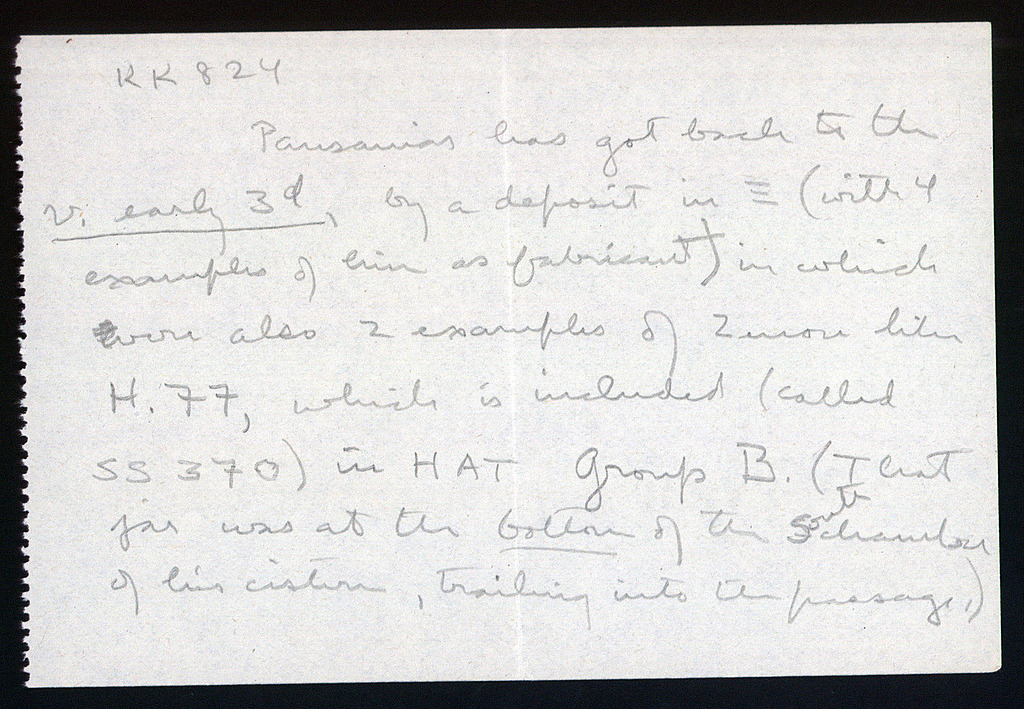 KK 824
Pausanias has got back to the
v. early 3d, by a deposit in Ξ (with 4
examples of him as fabricant†) in which
were also 2 examples of Zenon like
H. 77, which is included (called
SS 370) in HAT Group B. (That
jar was at the bottom of the South chamber
of his cistern, trailing into the passage.)